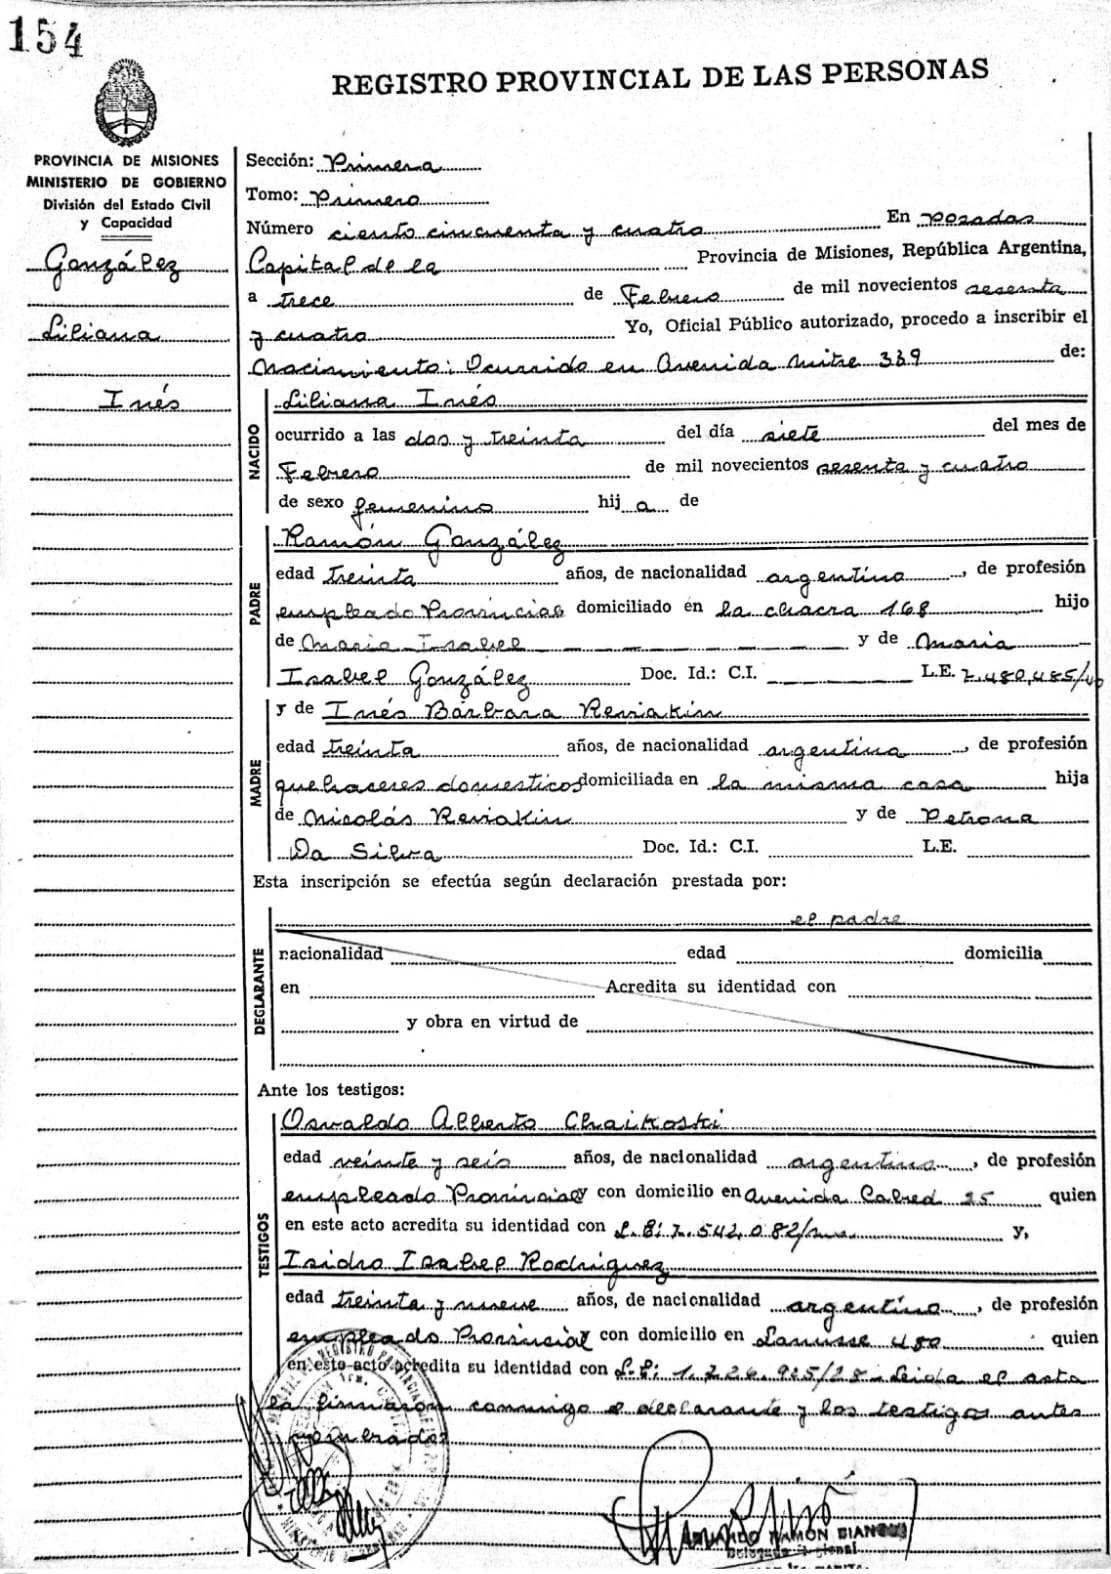 154
REGISTRO PROVINCIAL DE LAS PERSONAS
PROVINCIA DE MISIONES
MINISTERIO DE GOBIERNO
División del Estado Civil
y Capacidad
González
Liliana
Inés
Sección: Primera
Tomo: Primero
Número ciento cincuenta y cuatro En Posadas
Capital de la Provincia de Misiones, República Argentina,
a trece de Febrero de mil novecientos sesenta
y cuatro Yo, Oficial Público autorizado, procedo a inscribir el
Nacimiento: Ocurrido en Avenida Mitre 339 de:
NACIDO
Liliana Inés
ocurrido a las dos y treinta del día siete del mes de
Febrero de mil novecientos sesenta y cuatro
de sexo femenino hij a de
PADRE
Ramón González
edad treinta años, de nacionalidad argentina, de profesión
empleado Provincial domiciliado en la chacra 168 hijo
de Maria Isabel y de Maria
Isabel González Doc. Id.: C.I. L.E. 7.480.485/
MADRE
y de Inés Bárbara Reviakin
edad treinta años, de nacionalidad argentina, de profesión
quehaceres domesticos domiciliada en la misma casa hija
de Nicolás Reviakin y de Petrona
Da Silva Doc. Id.: C.I. L.E.
Esta inscripción se efectúa según declaración prestada por:
DECLARANTE
el padre
nacionalidad edad domicilia
en Acredita su identidad con
y obra en virtud de
Ante los testigos:
TESTIGOS
Osvaldo Alberto Chaikoski
edad veinte y seis años, de nacionalidad argentino, de profesión
empleado Provincial y con domicilio en Avenida Cabred 25 quien
en este acto acredita su identidad con L.E: 7.542.082/ y,
Isidro Isabel Rodriguez
edad treinta y nueve años, de nacionalidad argentino, de profesión
empleado Provincial con domicilio en Lanusse 480 quien
en este acto acredita su identidad con L.E: 1.726.925/28 - Leida el acta
la firmaron conmigo el declarante y los testigos antes
RAMÓN BIANCHI